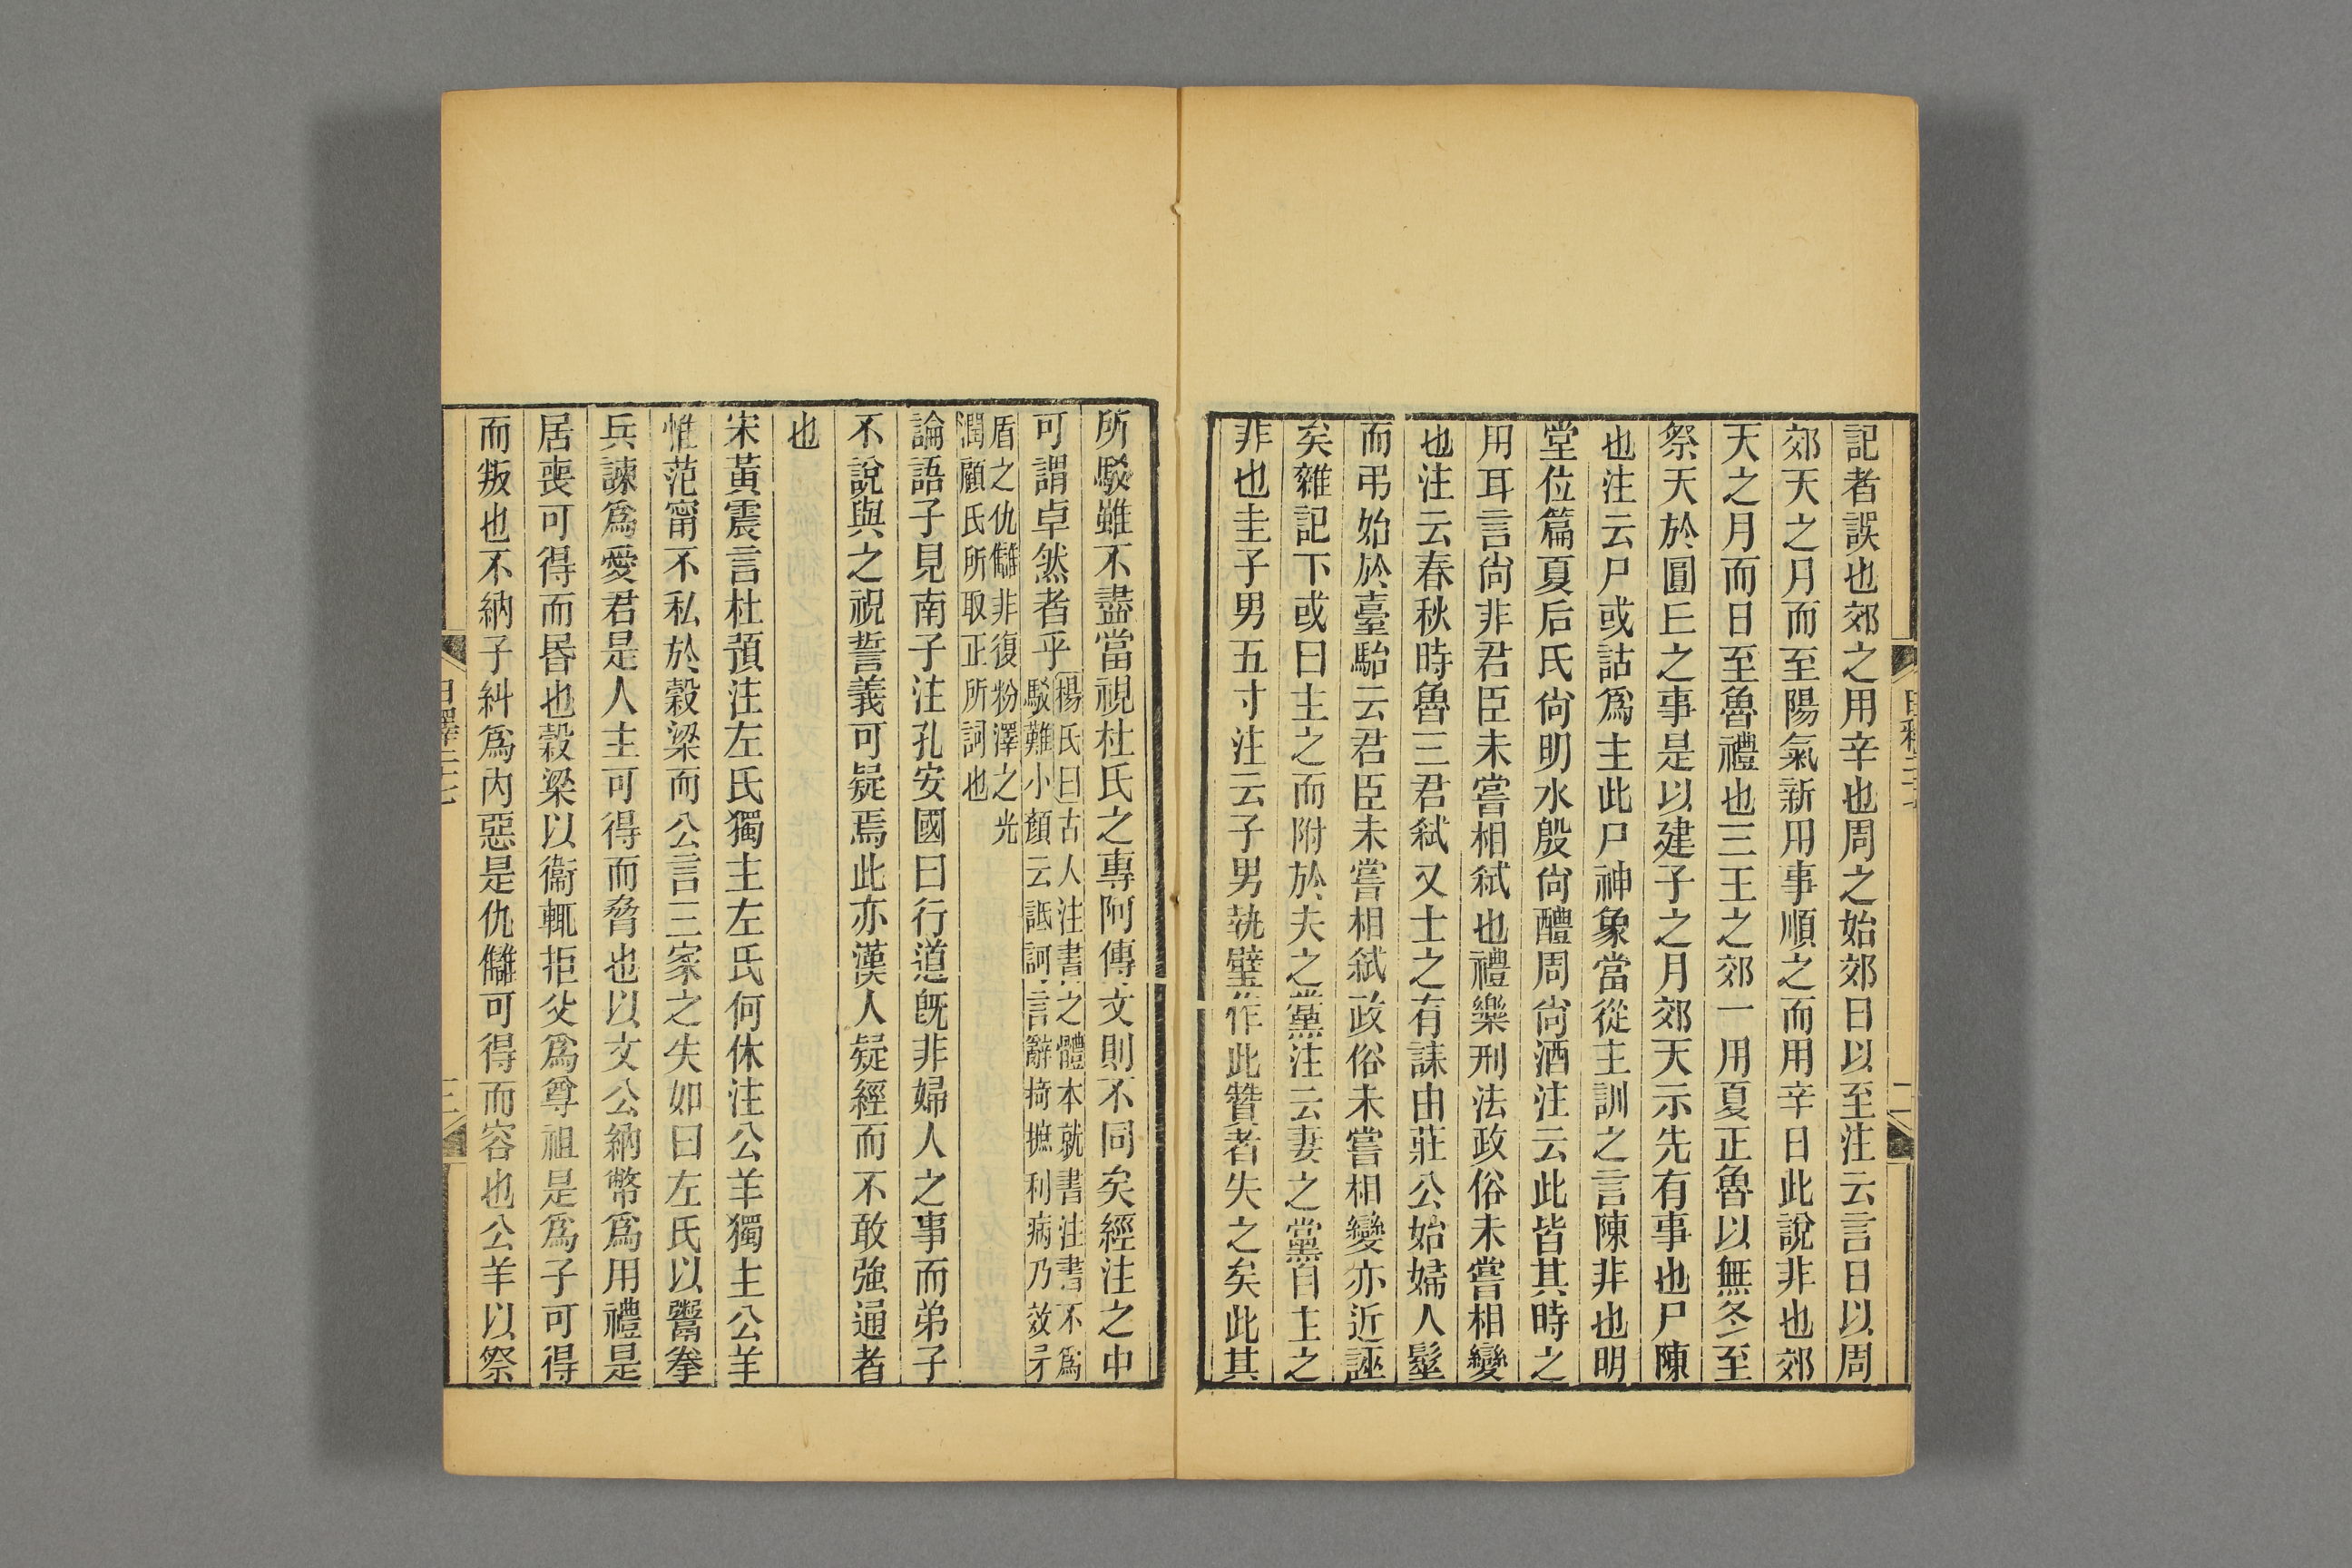 記者誤也郊之用辛也周之始郊日以至注云言日以周
郊天之月而至陽氣新用事順之而用辛日此說非也郊
天之月而日至魯禮也三王之郊一用夏正魯以無冬至
祭天於圓丘之事是以建子之月郊天示先有事也尸陳
也注云尸或詁爲主此尸神象當從主訓之言陳非也明
堂位篇夏后氏尙明水殷尙醴周尙酒注云此皆其時之
用耳言尙非君臣未嘗相弑也禮樂刑法政俗未嘗相變
也注云春秋時魯三君弑又士之有誄由莊公始婦人髽
而弔始於臺駘云君臣未嘗相弑政俗未嘗相變亦近誣
矣雜記下或曰主之而附於夫之黨注云妻之黨自主之
非也圭子男五寸注云子男執璧作此贊者失之矣此其
所駁雖不盡當視杜氏之專阿傳文則不同矣經注之中
可謂卓然者乎
楊氏曰古人注書之體本就書注書不爲
駁難小顏云詆訶言辭掎摭利病乃效矛
盾之仇讎非復粉澤之光
潤顧氏所取正所訶也
論語子見南子注孔安國曰行道旣非婦人之事而弟子
不說與之祝誓義可疑焉此亦漢人疑經而不敢強通者
也
宋黃震言杜預注左氏獨主左氏何休注公羊獨主公羊
惟范甯不私於穀梁而公言三家之失如曰左氏以鬻拳
兵諫爲愛君是人主可得而脅也以文公納幣爲用禮是
居喪可得而昬也穀梁以衞輒拒父爲尊祖是爲子可得
而叛也不納子糾爲內惡是仇讎可得而容也公羊以祭